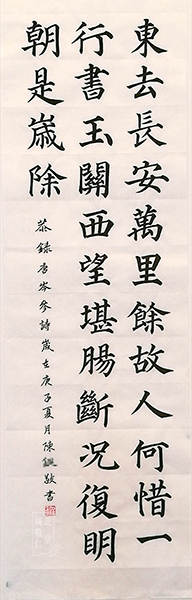 東去長安萬里餘故人何惜一
行書玉關西望堪腸斷況復明
朝是歲除
恭錄唐岑參詩歲在庚子夏月陳敬書